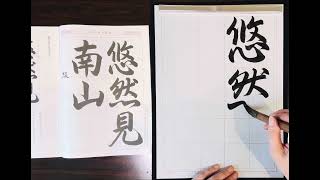 悠然見
南山
悠然